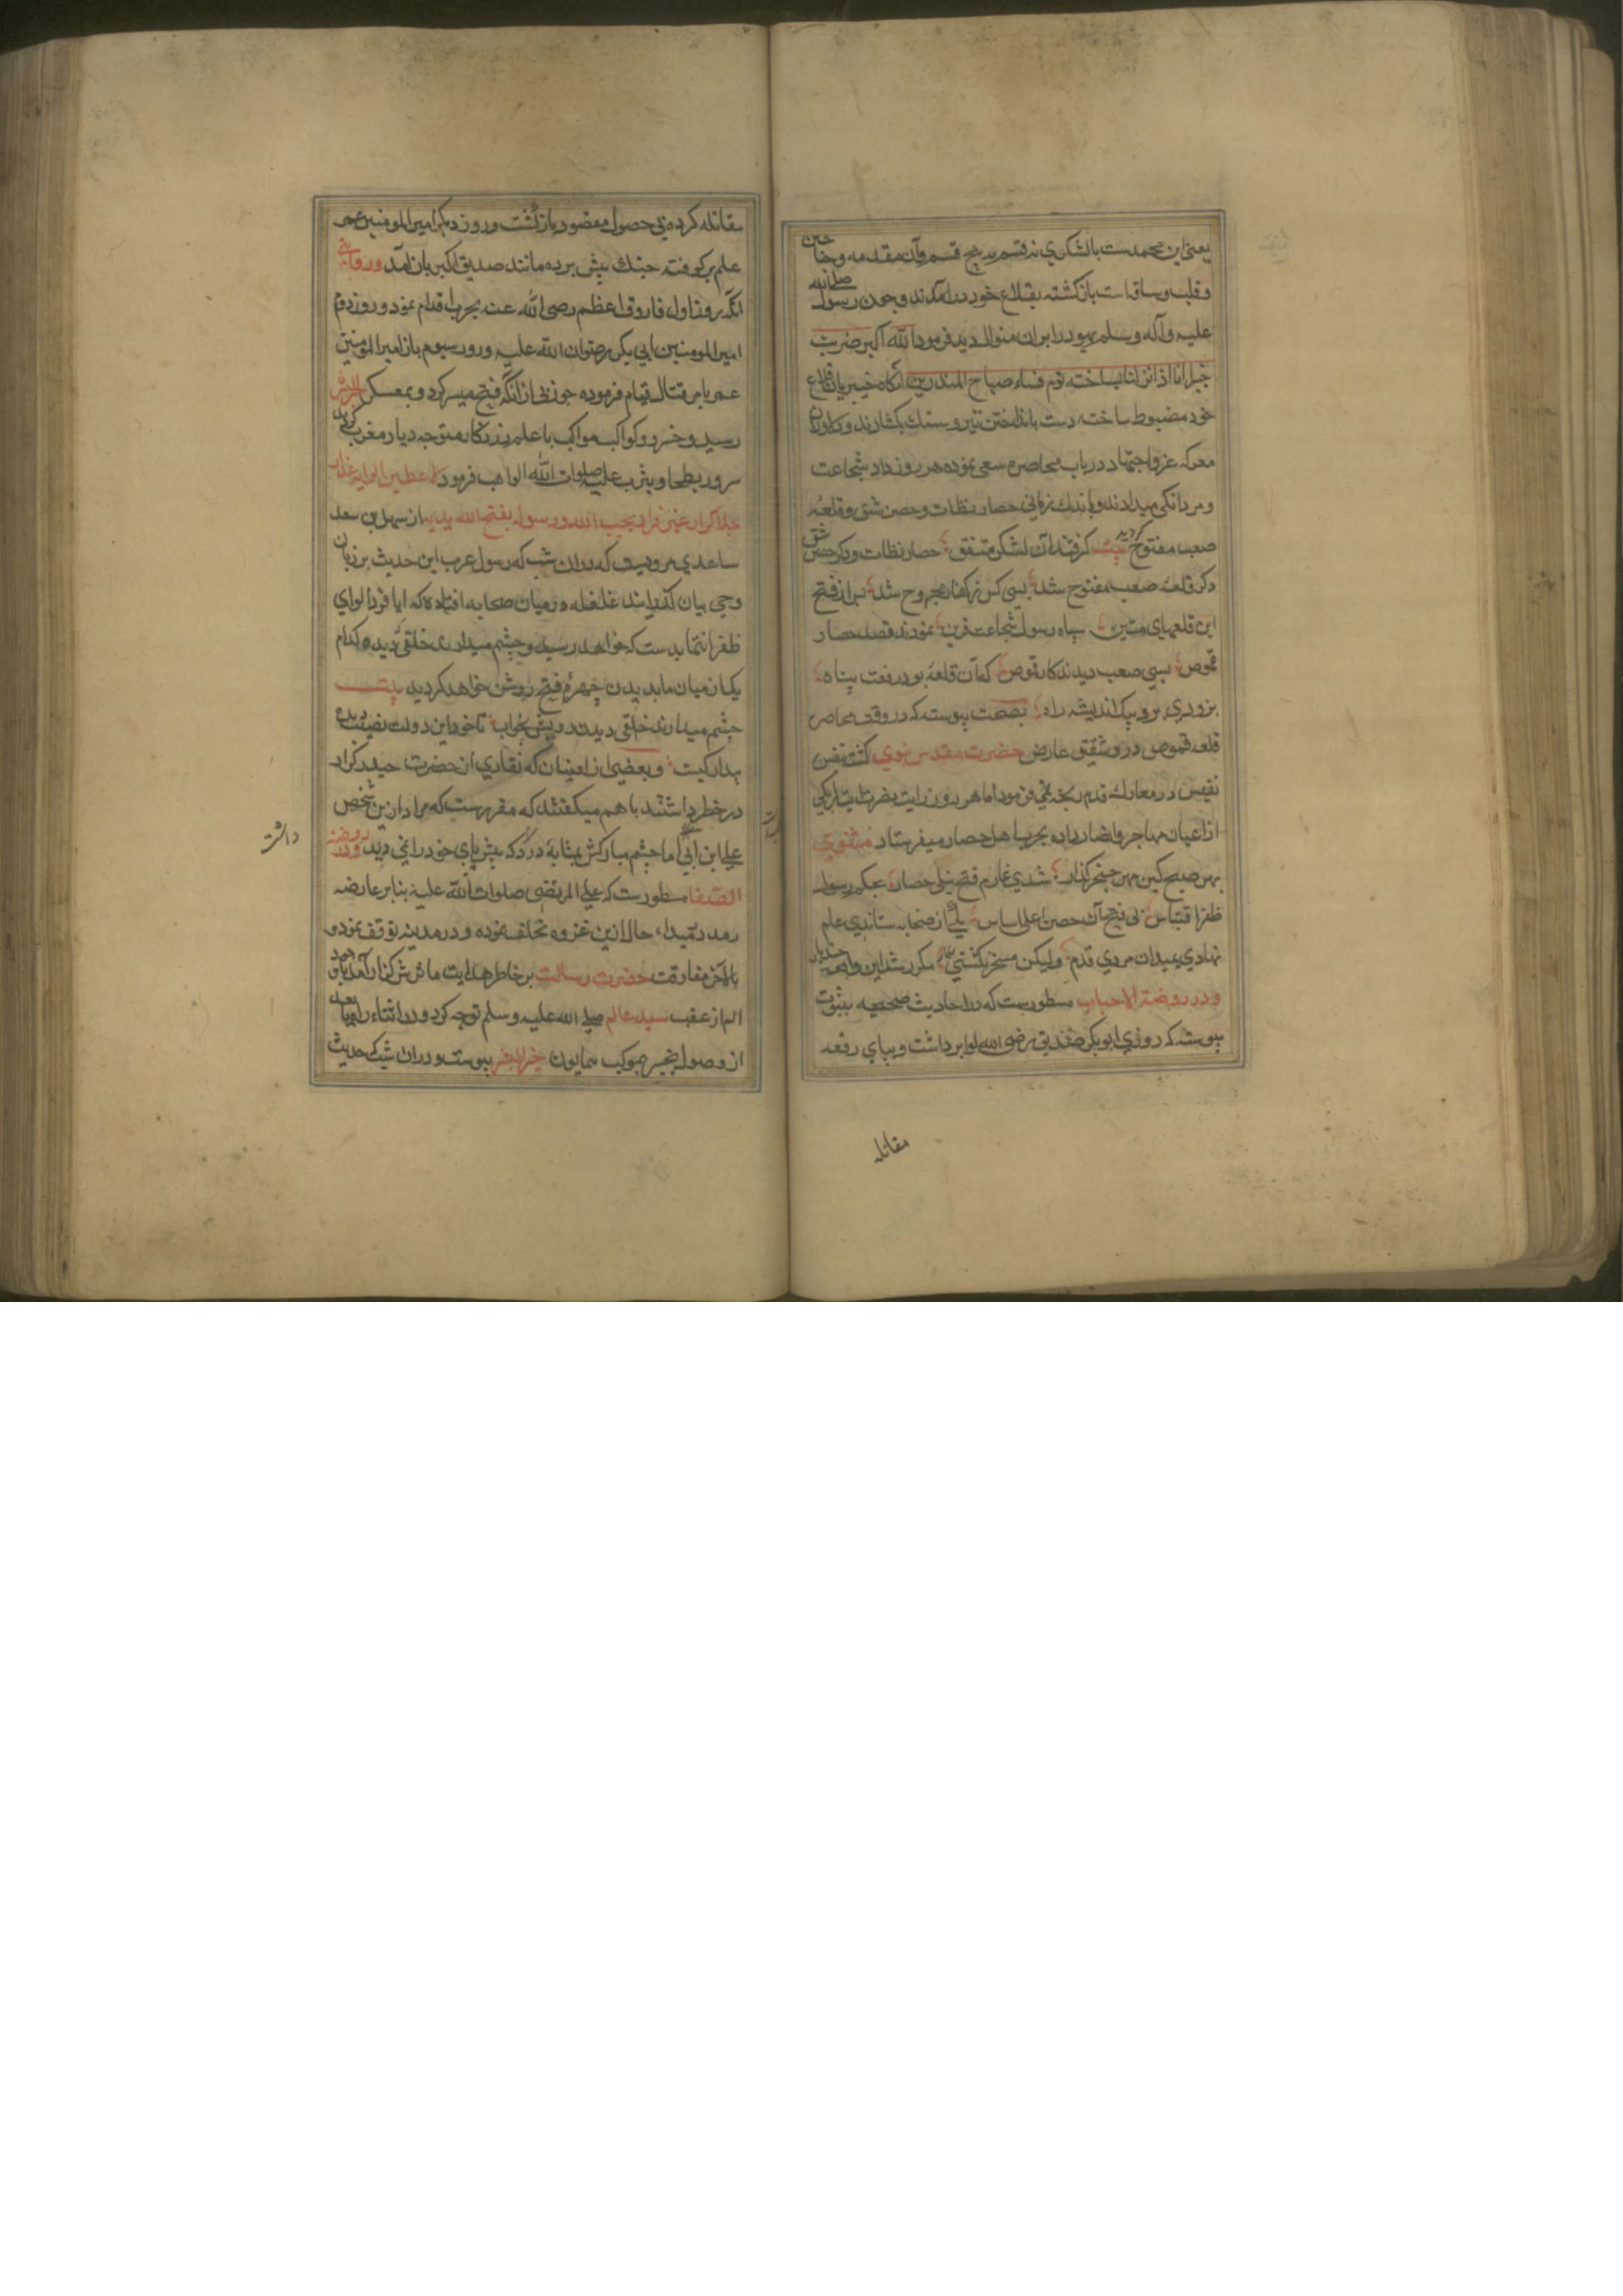 یعنی این محمدست بالشکری نه قسم به پنج قسم وآن مقدمه وجناحین
وقلب وساقه است بازکشته بقلاع خود درآمدند وچون رسول صلی الله
علیه وآله وسلم یهود را بران منوال دید فرمود الله اکبر خربت
خیبر انا اذا نزلنا بساحة قوم فساء صباح المنذرین آنکاه خیبریان قلاع
خود مضبوط ساخته دست بانداختن تیر وسنك بکشادند ودلاوران
معرکه غزو واجتهاد در باب محاصره سعی نموده هر روز داد شجاعت
ومردانکی میدادند وباندك زمانی حصار نطات وحصن شق وقلعه
صعب مفتوح کردید بیت کرفتند آن لشکر متفق حصار نطات ودکر حصن شق
دکر قلعه صعب مفتوح شد بسی کس ز کفار مجروح شد پس از فتح
این قلعهای متین سپاه رسول شجاعت قرین نمودند قصد حصار
قموص بسی صعب دیدند کار قموص که آن قلعه بود رفعت پناه
نبردی برو پیك اندیشه راه بصحت پیوسته که در وقت محاصره
قلعه قموص درد شقیقه عارض حضرت مقدس نبوی کشته بنفس
نفیس در معارك قدم رنجه نمی فرمود اما هر روز رایت نصرت آیت بیکی
از اعیان مهاجر وانصار داده بحرب اهل حصار میفرستاد مثنوی
بهر صبح کین مهر خنجر کذار شدی عازم فتح نیلی حصار بحکم رسول
ظفر اقتباس پی فتح آن حصن اعلی اساس یکی از صحابه ستاندی علم
نهادی بمیدان مردی قدم ولیکن مسخر نکشتی مکرر شد این واقعه چند بار
ودر روضة الاحباب مسطورست که در احادیث صحیحه بثبوت
پیوسته که روزی ابوبکر صدیق رضی الله لوا برداشت وبپای رفعه
مقاتله
مقاتله کرده بی حصول مقصود بازکشت وروز دیکر امیر المومنین عمر
علم برکوفته جنك پیش برده مانند صدیق اکبر بازآمد وروایتی
آنکه روز اول فاروق اعظم رضی الله عنه بحرب اقدام نمود وروز دوم
امیر المومنین ابی بکر رضوان الله علیه وروز سیوم باز امیر المومنین
عمر بامر قتال قیام فرموده چون بی ازانکه فتح میسر کردد بمعسکر
رسید وخسرو کواکب مواکب با علم زرنکار متوجه دیار مغرب کردید
سرور بطحا ویثرب علیه صلوات الله الواهب فرمود لاعطین الرایه غدا رجلا
کرار غیر فرار یحب الله ورسوله یفتح الله بیدیه از سهل بن سعد
ساعدی مرویست که دران شب که رسول عرب این حدیث بر زبان
وحی بیان کذرانید غلغله درمیان صحابه افتاد که آیا فردا لوای
ظفر انتما بدست که خواهد رسید وچشم میدارند خلقی دیده کدام
یك از میان ما بدیدن چهره فتح روشن خواهد کردید بیت
چشم میدارند خلقی دیدن رویش بخواب تا خود این دولت نصیب دیده
بیدار کیست وبعضی از اعیان که نقاری از حضرت حیدر کرار
در خطر داشتند باهم میکفتند که مقررست که مراد ازین شخص
علی ابن ابی اما چشم مبارکش بمثابه درد که پیش پای خود را نمی دید ودر روضة
الصفا مسطورست که علی المرتضی صلوات الله علیه بنابر عارضه
رمد در مبداء حال ازین غزوه تخلف نموده ودر مدینه توقف نمود و
بالآخر مفارقت حضرت رسالت بر خاطر هدایت ماثرش کران آمد با وجود
الم از عقب سید عالم صلی الله علیه وسلم توجه کرد ودر اثناء راه یا بعد
از وصول بخیبر بموکب همایون خیر البشر پیوست ودران شب که حدیث
داشته